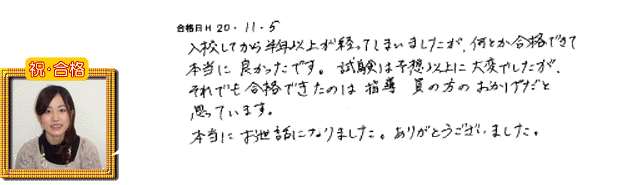 合格日H 20・11・5
入校してから半年以上が経ってしまいましたが、何とか合格できて
本当に良かったです。試験は予想以上に大変でしたが、
それでも合格できたのは指導員の方のおかげだと
思っています。
本当にお世話になりました。ありがとうございました。
祝・合格